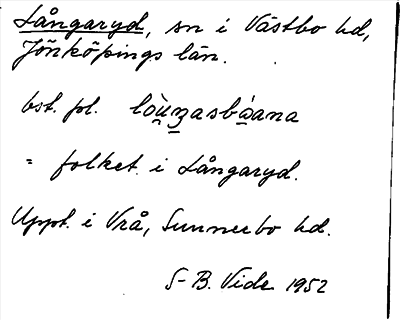 Långaryd, sn i Västbo hd,
Jönköpings län.
bst. pl. lòu̯ŋasbǻana
= folket i Långaryd.
Uppt. i Vrå, Sunnerbo hd.
S-B. Vide 1952